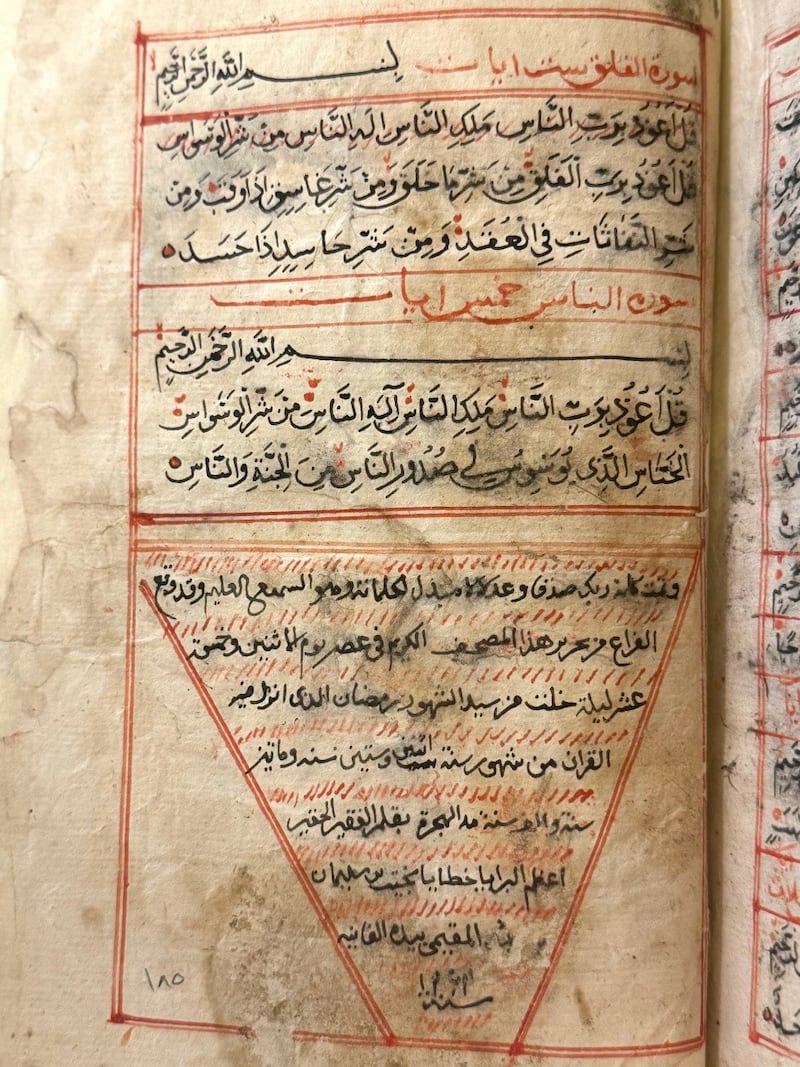 سورة الفلق ست ايات بسم الله الرحمن الرحيم
قُل أَعُوذُ بِرَبِّ النَّاسِ مَلِكِ النَّاسِ الَهِ النَّاسِ مِنْ شَرِّ الْوَسْوَاسِ
قُل أَعُوذُ بِرَبِّ الْفَلَقِ مِن شَرِّ مَا خَلَقَ وَمِنْ شَرِّ غَاسِقٍ اذَا وَقَبَ وَمِن
شَرِّ النَّفَّاثَاتِ فِي الْعُقَدِ وَمِنْ شَرِّ حَاسِدٍ اِذَا حَسَدَ
سورة الناس خمس ايات
بسم الله الرَّحْمَنِ الرَّحِيمِ
قُل أَعُوذُ بِرَبِّ النَّاسِ مَلِكِ النَّاسِ اِلَهِ النَّاسِ مِنَ شَرِّ الْوَسْوَاسِ
الْخَنَّاسِ الَّذِي يُوَسْوِسُ فِي صُدُورِ النَّاسِ مِنَ الْجِنَّةِ وَالنَّاسِ
وتمت كلمة ربك صدقا وعدلا لا مبدل لكلماته وهو السميع العليم وقد وقع
الفراغ من تحرير هذا المصحف الكريم في عصر يوم الاثنين وخمسة
عشر ليلة خلت من سيد الشهور رمضان الذي انزل فيه
القران من شهور سنة اثنين وستين سنه وماتين
سنة والف سنة من الهجرة بقلم الفقير الحقير
اعظم البرايا خطايا بخيت بن سليمان
المقيمي بيده الفانيه
سنة
١٨٥